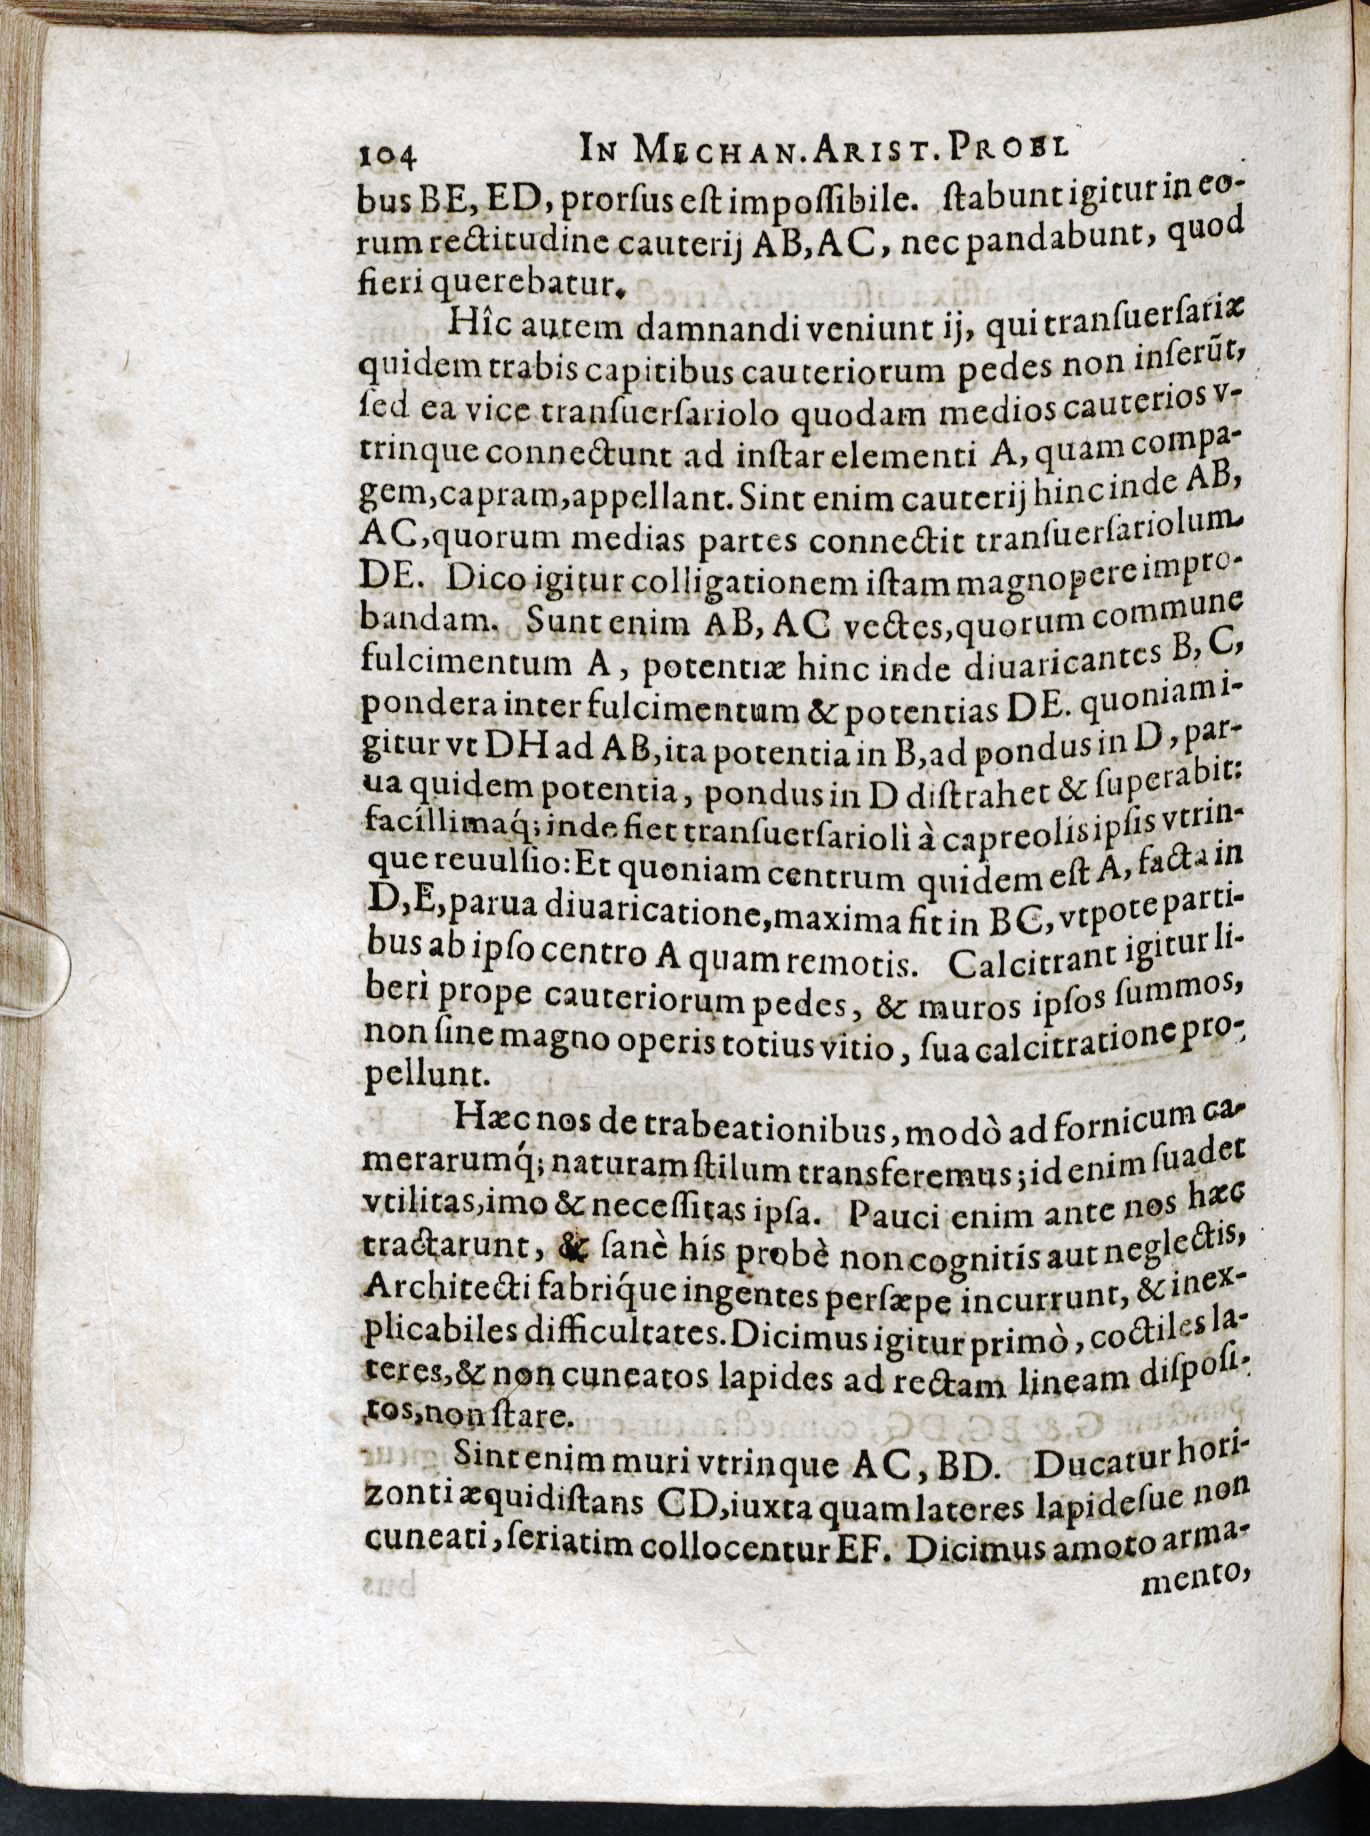 104 IN MECHAN. ARIST. PROBL
bus BE, ED, prorſus eſt impoſſibile. ſtabunt igitur in eo-
rum rectitudine cauterij AB, AC, nec pandabunt, quod
fieri querebatur.
Hîc autem damnandi veniunt ij, qui tranſuerſariæ
quidem trabis capitibus cauteriorum pedes non inſerũt,
ſed ea vice tranſuerſariolo quodam medios cauterios v-
trinque connectunt ad inſtar elementi A, quam compa-
gem, capram, appellant. Sint enim cauterij hinc inde AB,
AC, quorum medias partes connectit tranſuerſariolum
DE. Dico igitur colligationem iſtam magnopere impro-
bandam. Sunt enim AB, AC vectes, quorum commune
fulcimentum A, potentiæ hinc inde diuaricantes B, C,
pondera inter fulcimentum & potentias DE. quoniam i-
gitur vt DH ad AB, ita potentia in B, ad pondus in D, par-
ua quidem potentia, pondus in D diſtrahet & ſuperabit:
facíllimaq́; inde fiet tranſuerſariolì à capreolis ipſis vtrin-
que reuulſio: Et quoniam centrum quidem eſt A, facta in
D, E, parua diuaricatione, maxima fit in BC, vtpote parti-
bus ab ipſo centro A quam remotis. Calcitrant igitur li-
berì prope cauteriorum pedes, & muros ipſos ſummos,
non ſine magno operis totius vitio, ſua calcitratione pro-
pellunt.
Hæc nos de trabeationibus, modò ad fornicum ca-
merarumq́; naturam ſtilum transferemus; id enim ſuadet
vtilitas, imo & neceſſitas ipſa. Pauci enim ante nos hæc
tractarunt, & ſanè hís probè non cognitis aut neglectis,
Architecti fabriq́ue ingentes perſæpe incurrunt, & inex-
plicabiles difficultates. Dicimus igitur primò, coctiles la-
teres, & non cuneatos lapides ad rectam lineam diſpoſi-
tos, non ſtare.
Sint enim muri vtrinque AC, BD. Ducatur hori-
zonti æquidiſtans CD, iuxta quam lateres lapideſue non
cuneati, ſeriatim collocentur EF. Dicimus amoto arma-
mento,